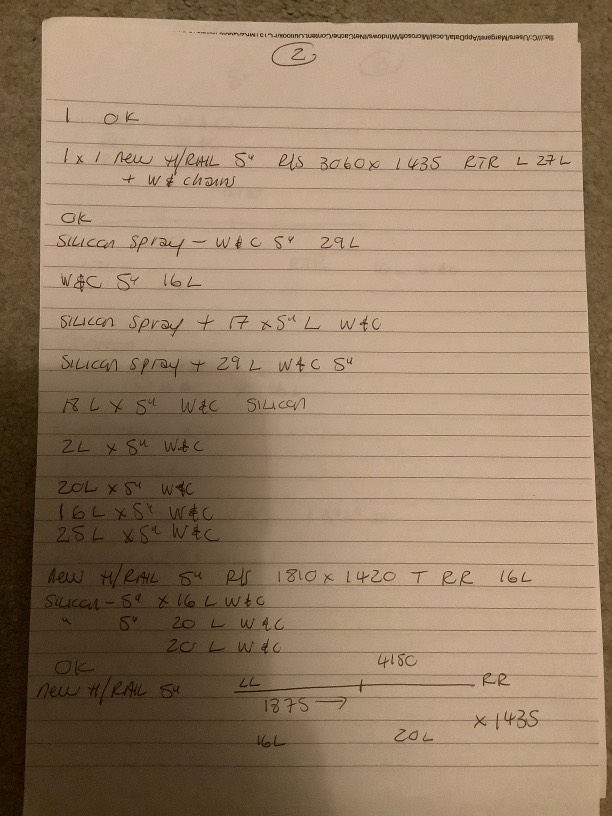 file:///C:/Users/Margaret/AppData/Local/Microsoft/Windows/INetCache/Content.Outlook/
2
1 OK
1 x 1 new H/RAIL 5" R/S 3060 x 1435 RTR L 27L
+ W & chains
OK
Silicon Spray - W & C 5" 29L
W&C 5" 16L
Silicon Spray + 17 x 5" L W&C
Silicon Spray + 29 L W&C 5"
18 L x 5" W&C Silicon
2L x 5" W&C
20L x 5" W&C
16L x 5" W&C
25L x 5" W&C
new H/RAIL 5" R/S 1810 x 1420 T RR 16L
Silicon - 5" x 16 L W&C
" 5" 20 L W&C
20 L W&C
OK
4150
new H/RAIL 5" LL RR
1875 →
x 1435
16L 20L